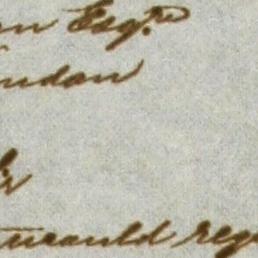 n Esqre
ndon
ir
would reg